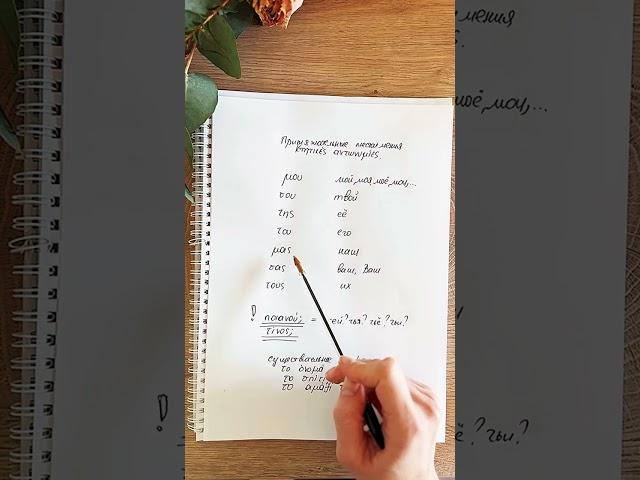 Притяжательные местоимения
κτητικές αντωνυμίες.
μου мой, моя, моё, мои,...
σου твой
της её
του его
μας наш
σας ваш, Ваш
τους их
! ποιανού; = чей? чья? чьё? чьи?
τίνος;
существительные
το όνομα
το σπίτι
το αμάξι